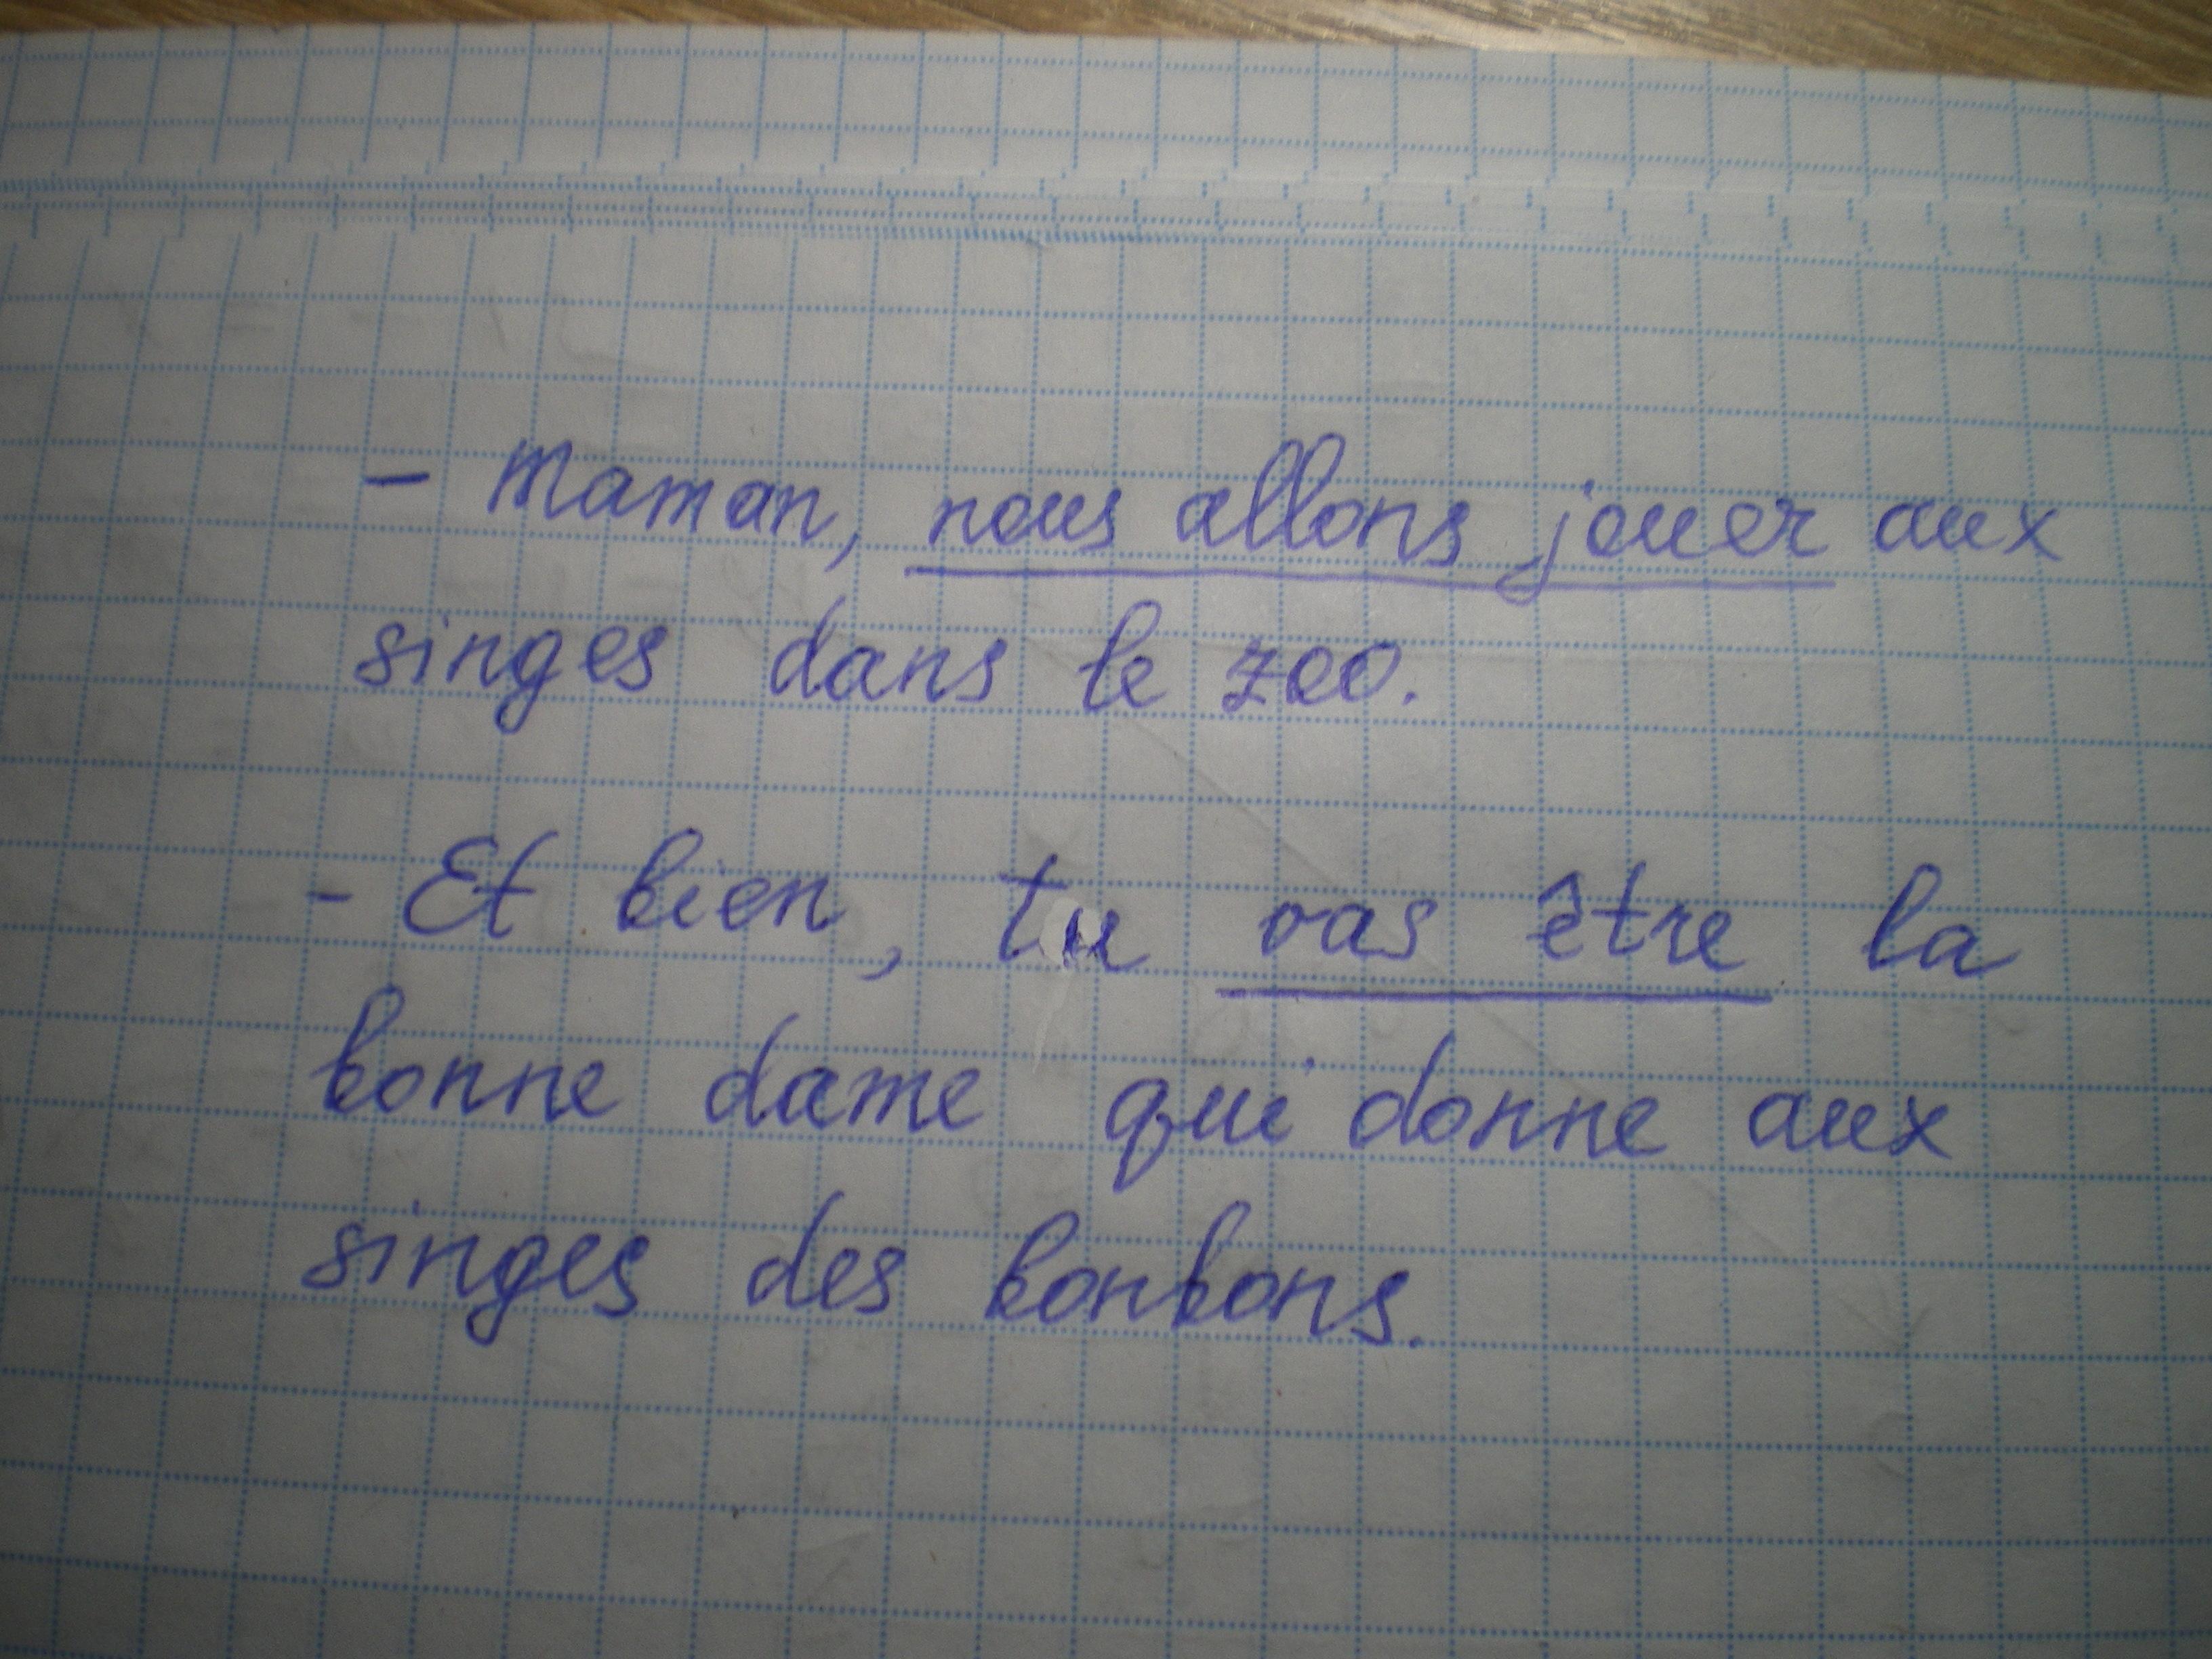 - Maman, nous allons jouer aux
singes dans le zoo.
- Et bien, tu vas être la
bonne dame qui donne aux
singes des bonbons.